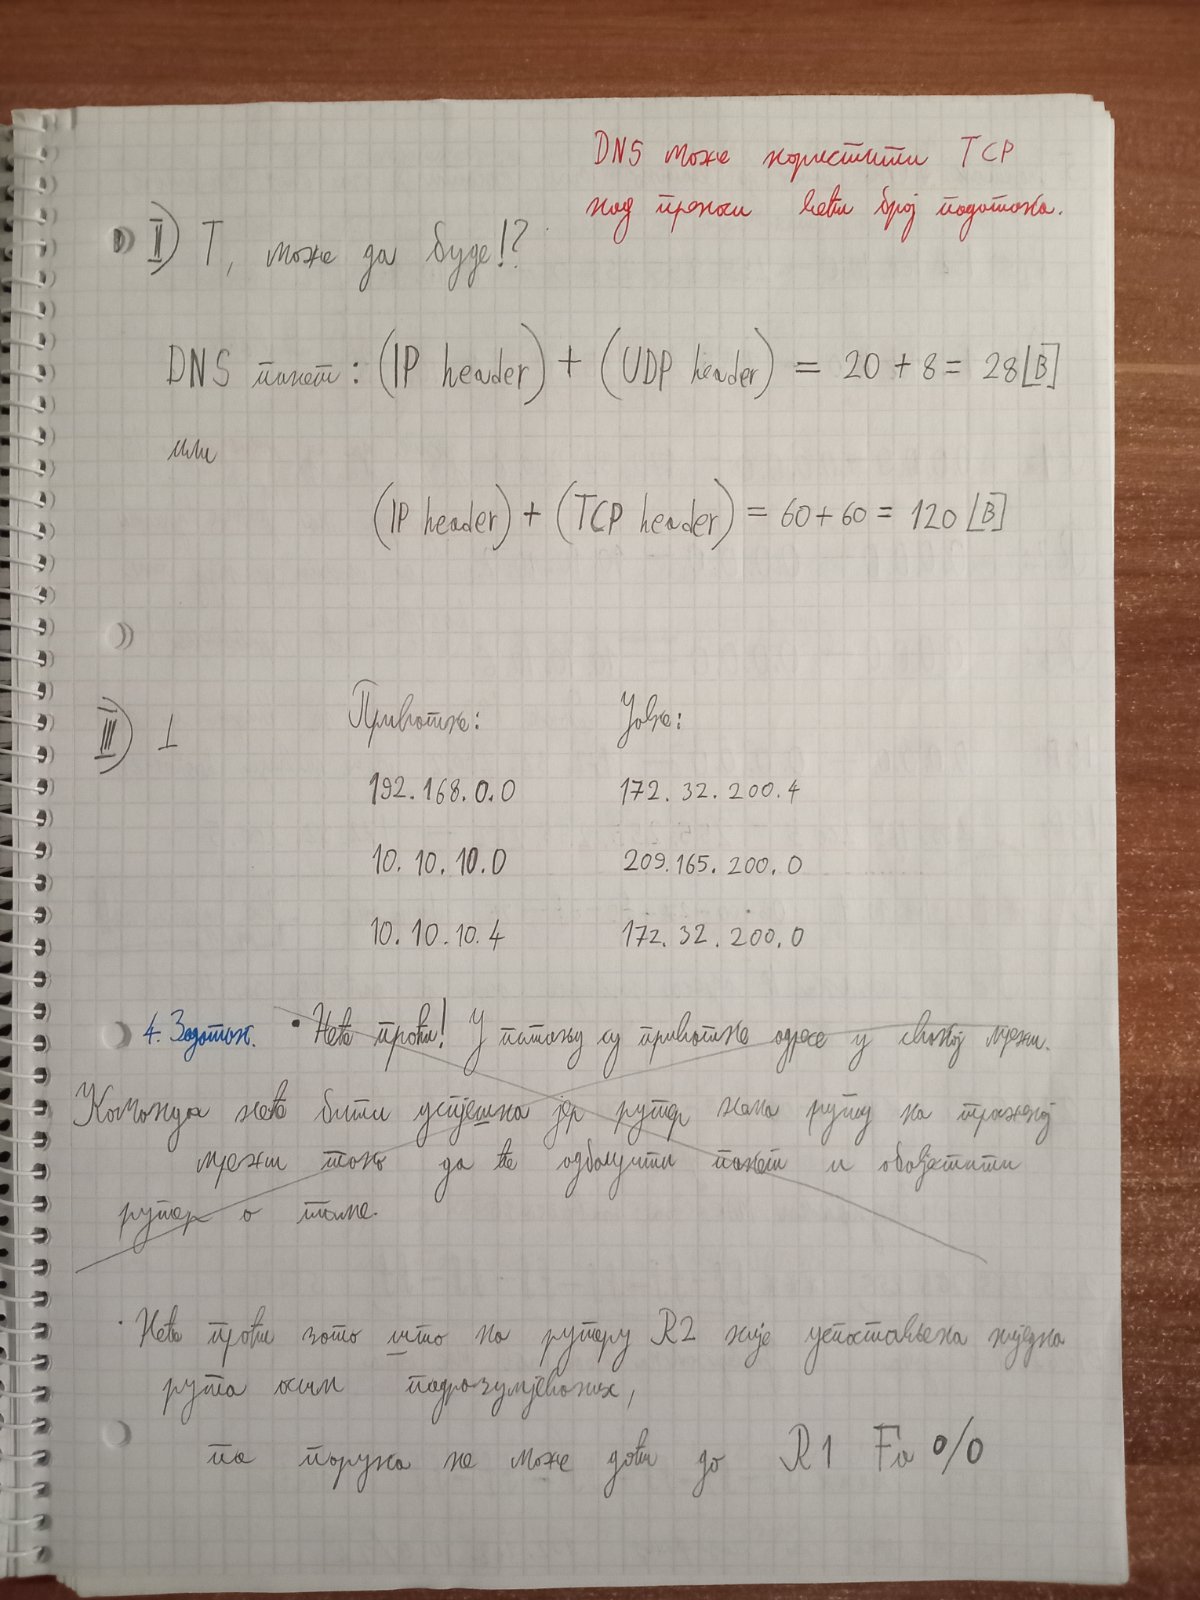 DNS може користити TCP
код преноси већи број података.
II) Т, може да буде!?
DNS пакет: (IP header) + (UDP header) = 20 + 8 = 28 [B]
или
(IP header) + (TCP header) = 60 + 60 = 120 [B]
III) ⊥ Приватне: Јавне:
192.168.0.0 172.32.200.4
10.10.10.0 209.165.200.0
10.10.10.4 172.32.200.0
4. Задатак. • Неће проћи! У питању су приватне адресе у свакој мрежи.
Команда неће бити успјешна јер рутер нема руту на траженој
мрежи тако да ће одбацити пакет и обавјестити
рутер о томе.
• Неће проћи зато што на рутеру R2 није успостављена ниједна
рута осим подразумјеваних,
па порука не може доћи до R1 Fa 0/0